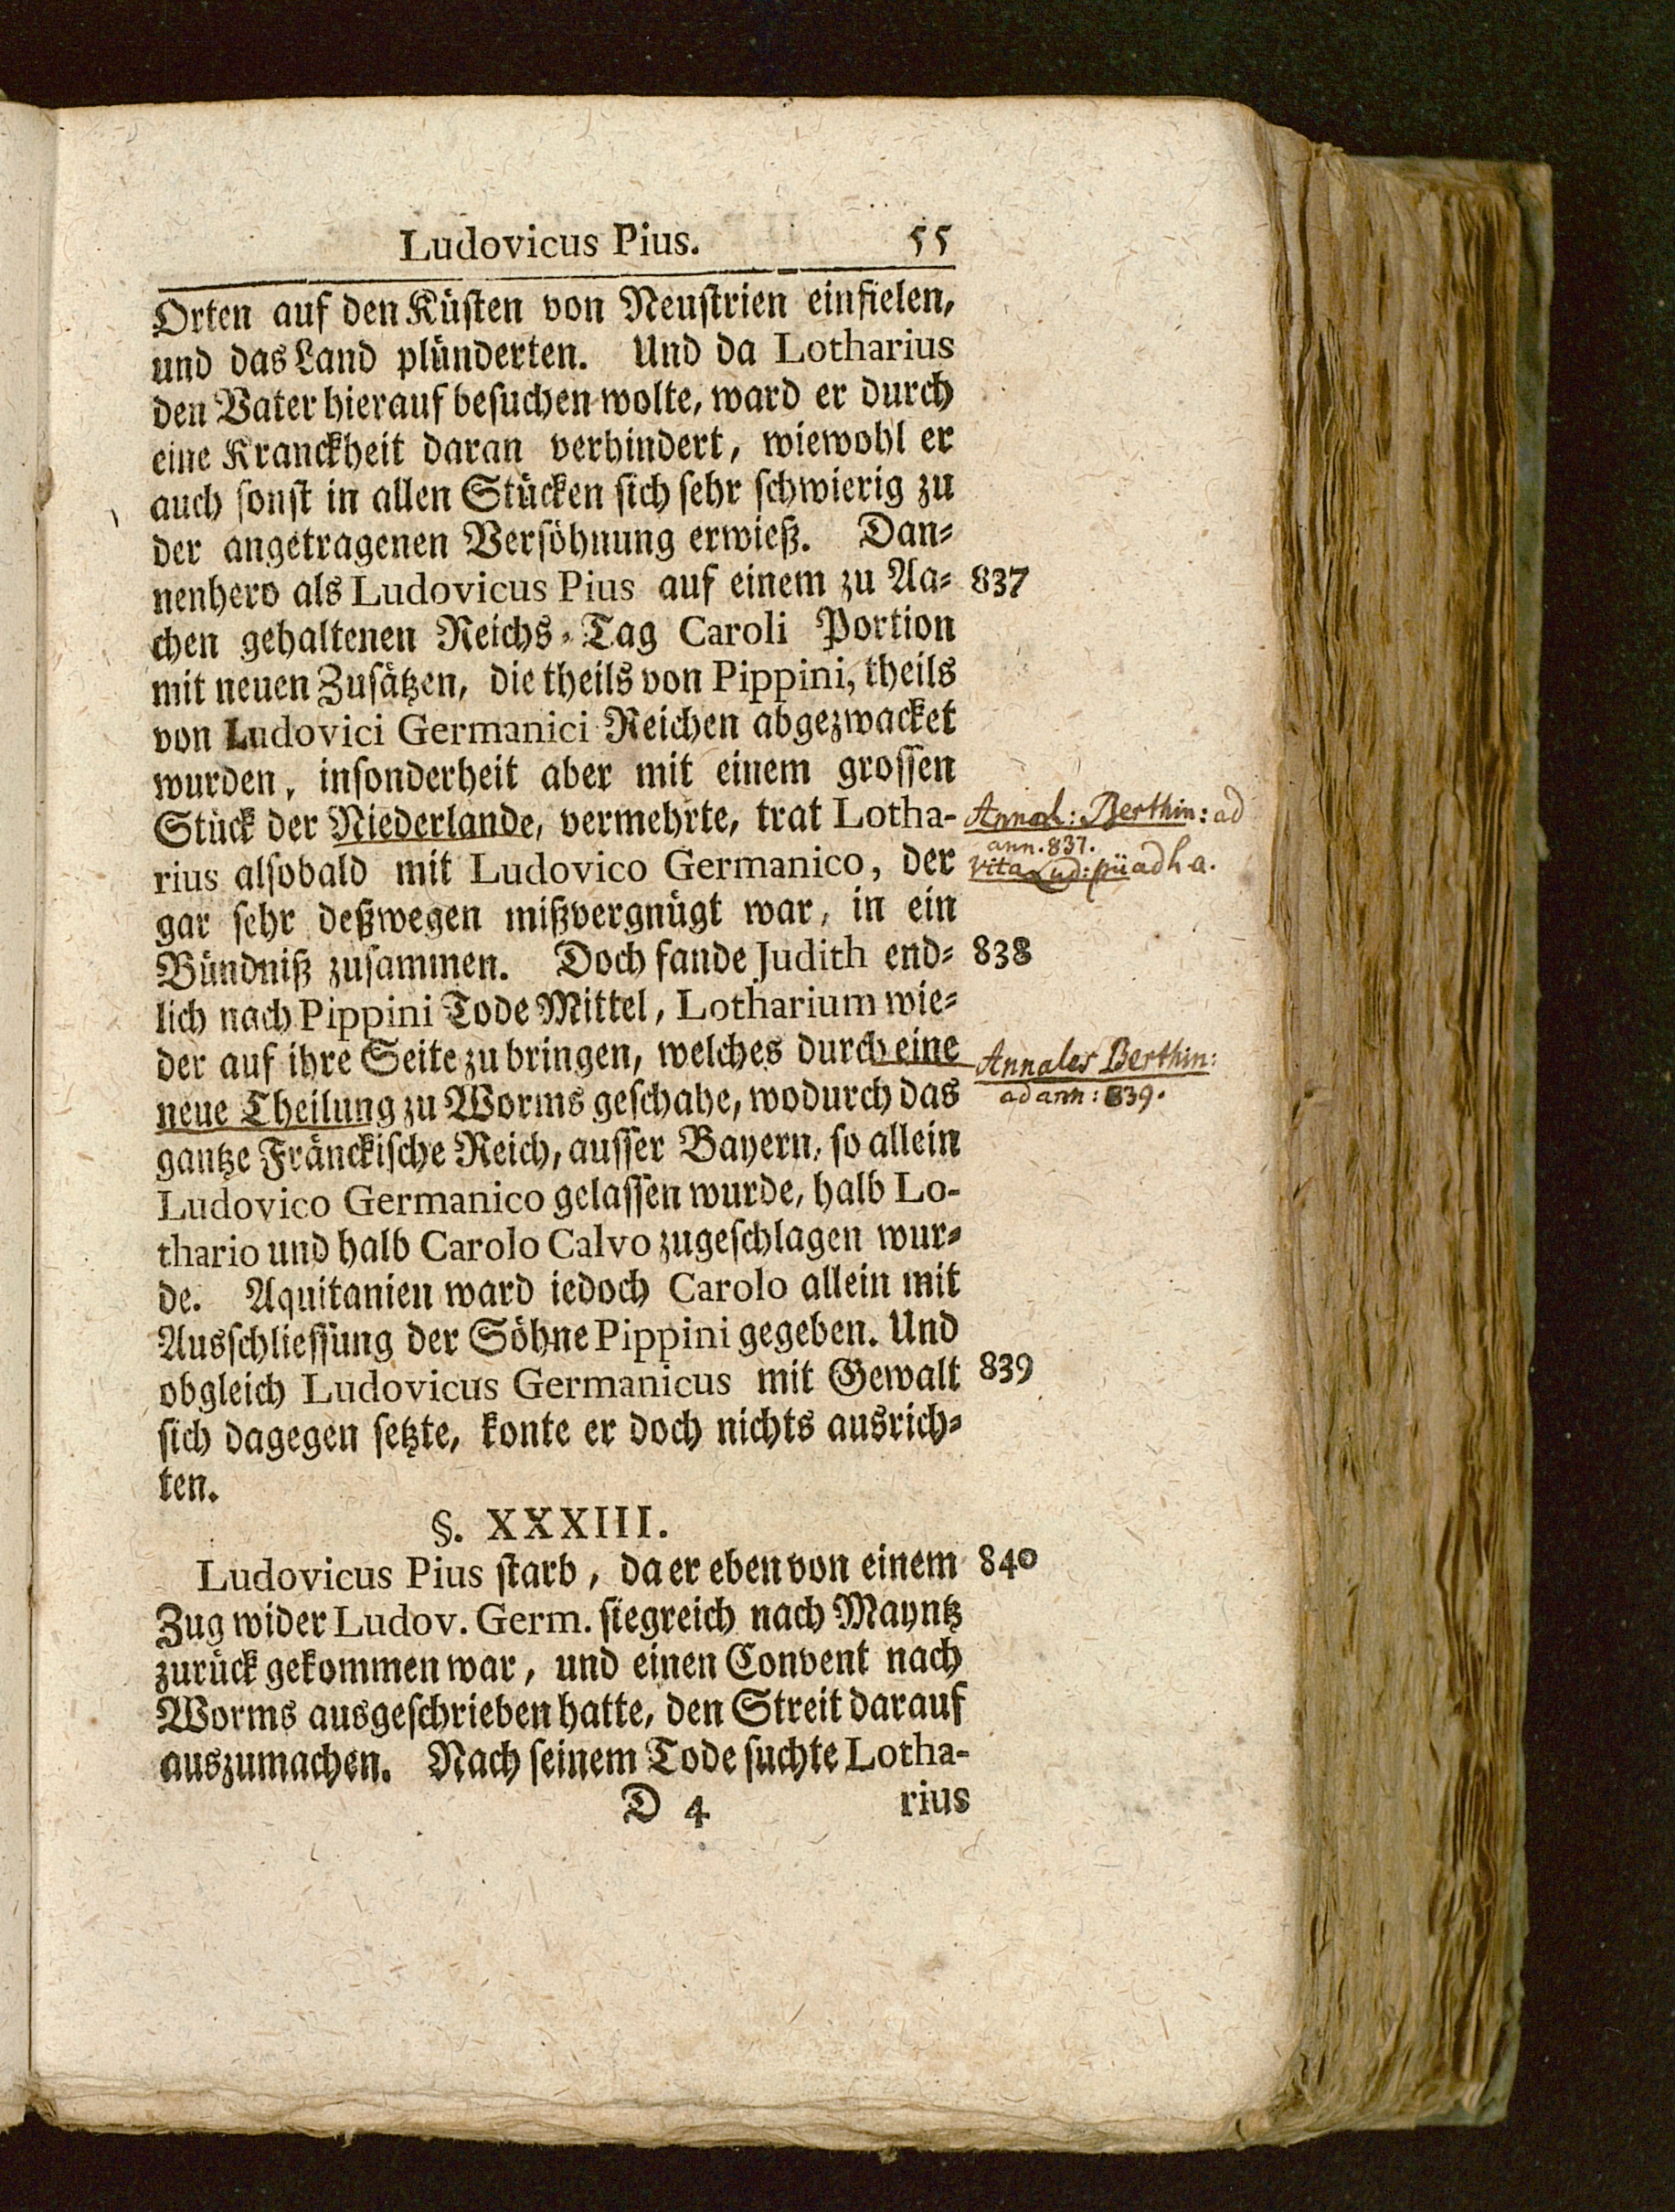 Ludovicus Pius. 55
Orten auf den Küsten von Neustrien einfielen,
und das Land plünderten. Und da Lotharius
den Vater hierauf besuchen wolte, ward er durch
eine Kranckheit daran verhindert, wiewohl er
auch sonst in allen Stücken sich sehr schwierig zu
der angetragenen Versöhnung erwieß. Dan-
nenhero als Ludovicus Pius auf einem zu Aa- 837
chen gehaltenen Reichs-Tag Caroli Portion
mit neuen Zusätzen, die theils von Pippini, theils
von Ludovici Germanici Reichen abgezwacket
wurden, insonderheit aber mit einem grossen
Stück der Niederlande, vermehrte, trat Lotha- Annal: Berthin: ad
ann. 837.
rius alsobald mit Ludovico Germanico, der vita Lud: pii ad h a.
gar sehr deßwegen mißvergnügt war, in ein
Bündniß zusammen. Doch fande Judith end- 838
lich nach Pippini Tode Mittel, Lotharium wie-
der auf ihre Seite zu bringen, welches durch eine Annales Berthin:
neue Theilung zu Worms geschahe, wodurch das ad ann: 839.
gantze Fränckische Reich, ausser Bayern, so allein
Ludovico Germanico gelassen wurde, halb Lo-
thario und halb Carolo Calvo zugeschlagen wur-
de. Aquitanien ward iedoch Carolo allein mit
Ausschliessung der Söhne Pippini gegeben. Und
obgleich Ludovicus Germanicus mit Gewalt 839
sich dagegen setzte, konte er doch nichts ausrich-
ten.
§. XXXIII.
Ludovicus Pius starb, da er eben von einem 840
Zug wider Ludov. Germ. siegreich nach Mayntz
zurück gekommen war, und einen Convent nach
Worms ausgeschrieben hatte, den Streit darauf
auszumachen. Nach seinem Tode suchte Lotha-
D 4 rius